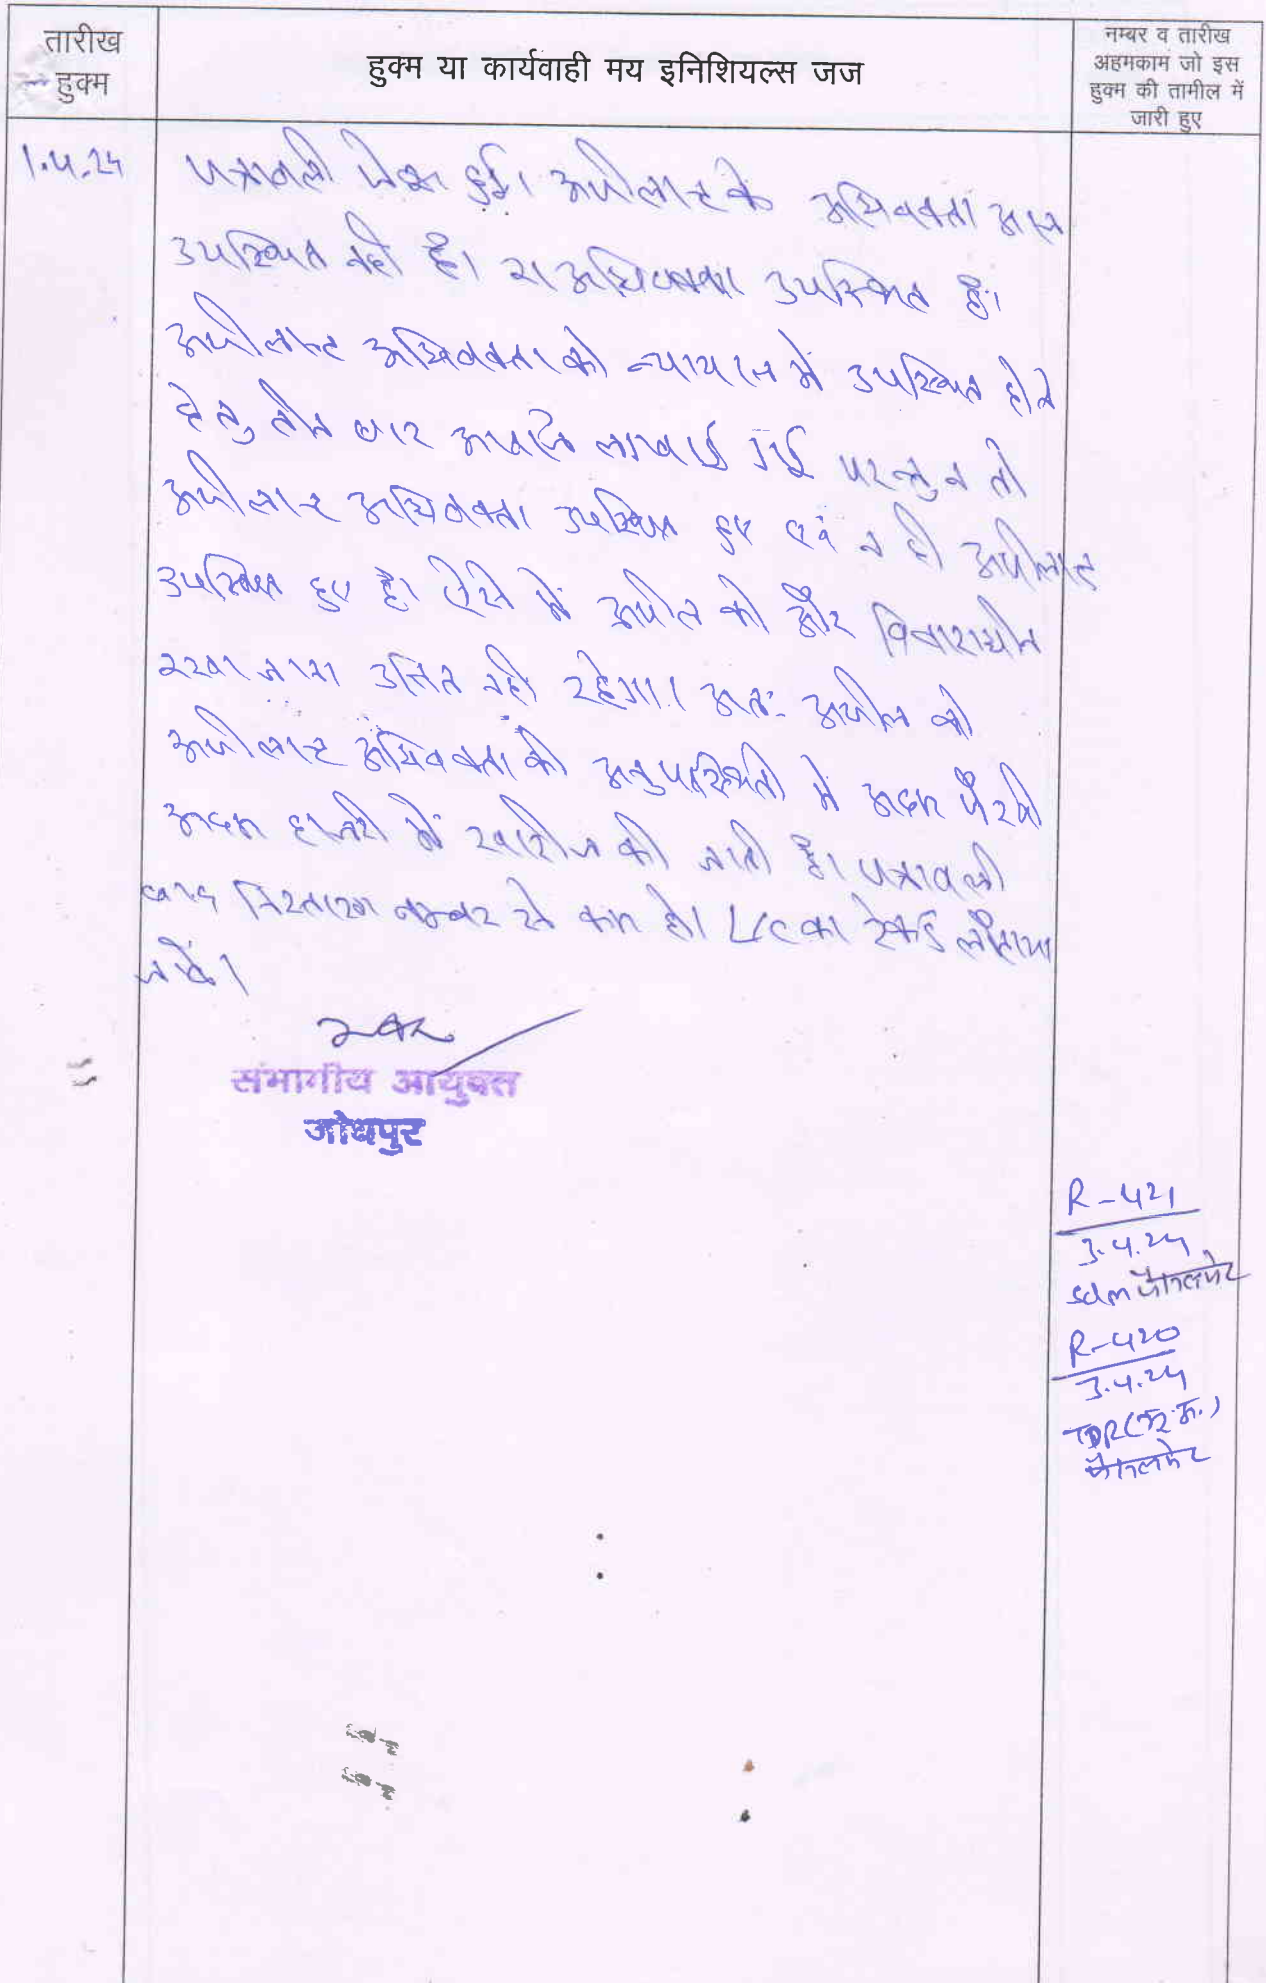 तारीख
हुक्म
हुक्म या कार्यवाही मय इनिशियल्स जज
नम्बर व तारीख
अहमकाम जो इस
हुक्म की तामील में
जारी हुए
1.4.24
पत्रावली पेश हुई। अपीलान्ट के अधिवक्ता आज
उपस्थित नहीं है। रा अधिवक्ता उपस्थित है।
अपीलान्ट अधिवक्ता को न्यायालय में उपस्थित होने
हेतु तीन बार आवाजे लगवाई गई परन्तु न तो
अपीलान्ट अधिवक्ता उपस्थित हुए एवं न ही अपीलान्ट
उपस्थित हुए है। ऐसे में अपील को और विचाराधीन
रखा जाना उचित नहीं रहेगा। अतः अपील को
अपीलान्ट अधिवक्ता की अनुपस्थिती में अदम पैरवी
अदम हाजरी में खारीज की जाती है। पत्रावली
बाद निस्तारण नम्बर से कम हो। L/C का रेकर्ड लौटाया
जावें।
संभागीय आयुक्त
जोधपुर
R-421
3.4.24
SDM
R-420
3.4.24
TDR (भू.अ.)